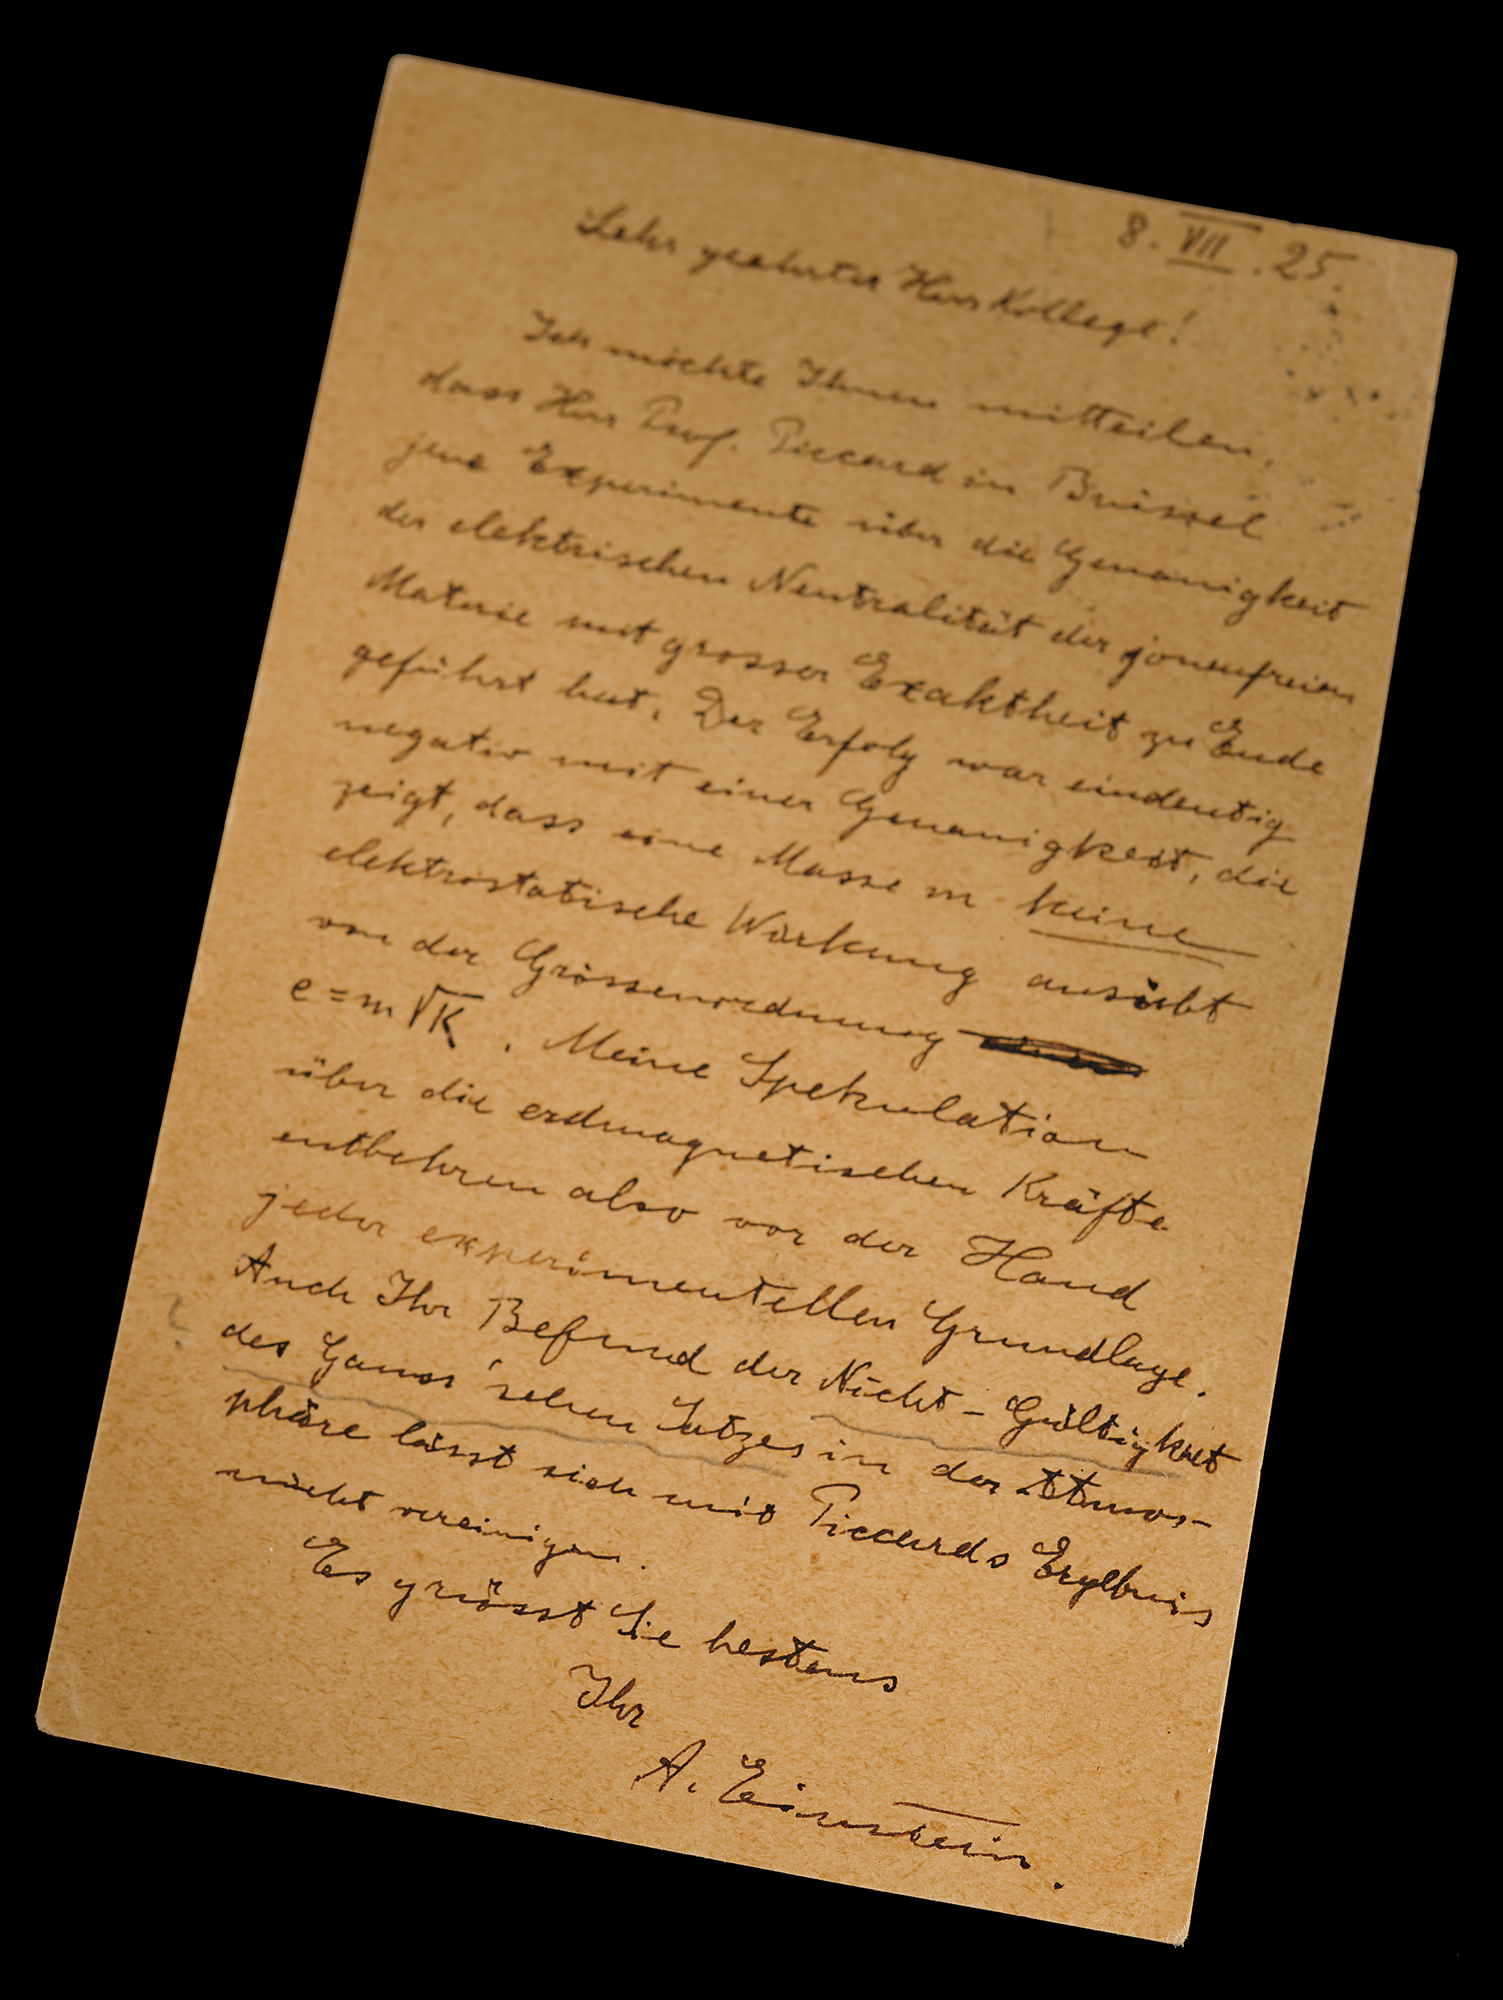 8. VII. 25.
Sehr geehrter Herr Kollege!
Ich möchte Ihnen mitteilen,
dass Herr Prof. Piccard in Brüssel
jene Experimente über die Genauigkeit
der elektrischen Neutralität der jonenfreien
Materie mit grosser Exaktheit zu Ende
geführt hat. Der Erfolg war eindeutig
negativ mit einer Genauigkeit, die
zeigt, dass eine Masse m keine
elektrostatische Wirkung ausübt
von der Grössenordnung
e = m √K . Meine Spekulation
über die erdmagnetischen Kräfte
entbehren also vor der Hand
jeder experimentellen Grundlage.
Auch Ihr Befund der Nicht-Gültigkeit
des Gauss'schen Satzes in der Atmos-
phäre lässt sich mit Piccards Ergebnis
nicht vereinigen.
Es grüsst Sie bestens
Ihr
A. Einstein.